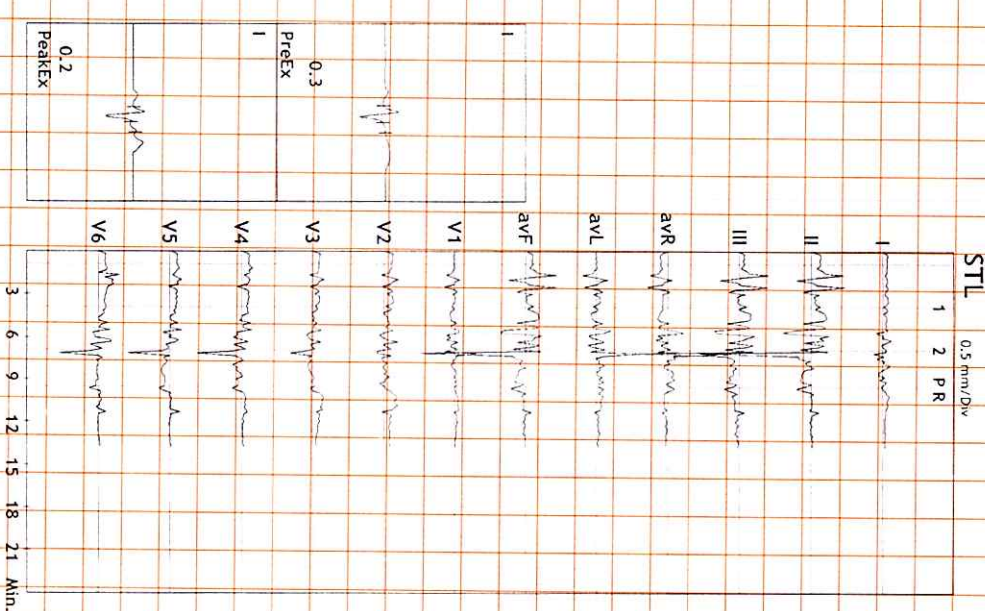 STL
0.5 mm/Div
1 2 P R
I
II
III
avR
avL
avF
V1
V2
V3
V4
V5
V6
3 6 9 12 15 18 21 Min.
I
0.3
PreEx
I
0.2
PeakEx